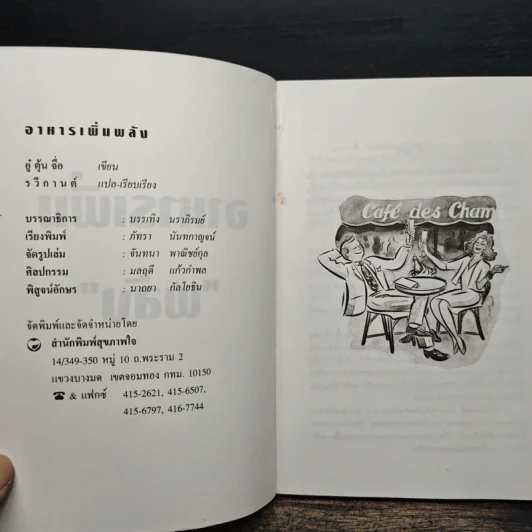 อาหารเพิ่มพลัง
อู๋ ตุ้น จื่อ เขียน
รวีกานต์ แปล-เรียบเรียง
บรรณาธิการ : บรรเทิง นราภิรมย์
เรียงพิมพ์ : ภัทรา นันทกาญจน์
จัดรูปเล่ม : จันทนา พาณิชย์กุล
ศิลปกรรม : มลฤดี แก้วกำพล
พิสูจน์อักษร : นาถยา กัลโยธิน
จัดพิมพ์และจัดจำหน่ายโดย
สำนักพิมพ์สุขภาพใจ
14/349-350 หมู่ 10 ถ.พระราม 2
แขวงบางมด เขตจอมทอง กทม. 10150
☎ & แฟกซ์ 415-2621, 415-6507,
415-6797, 416-7744
Café des Cham